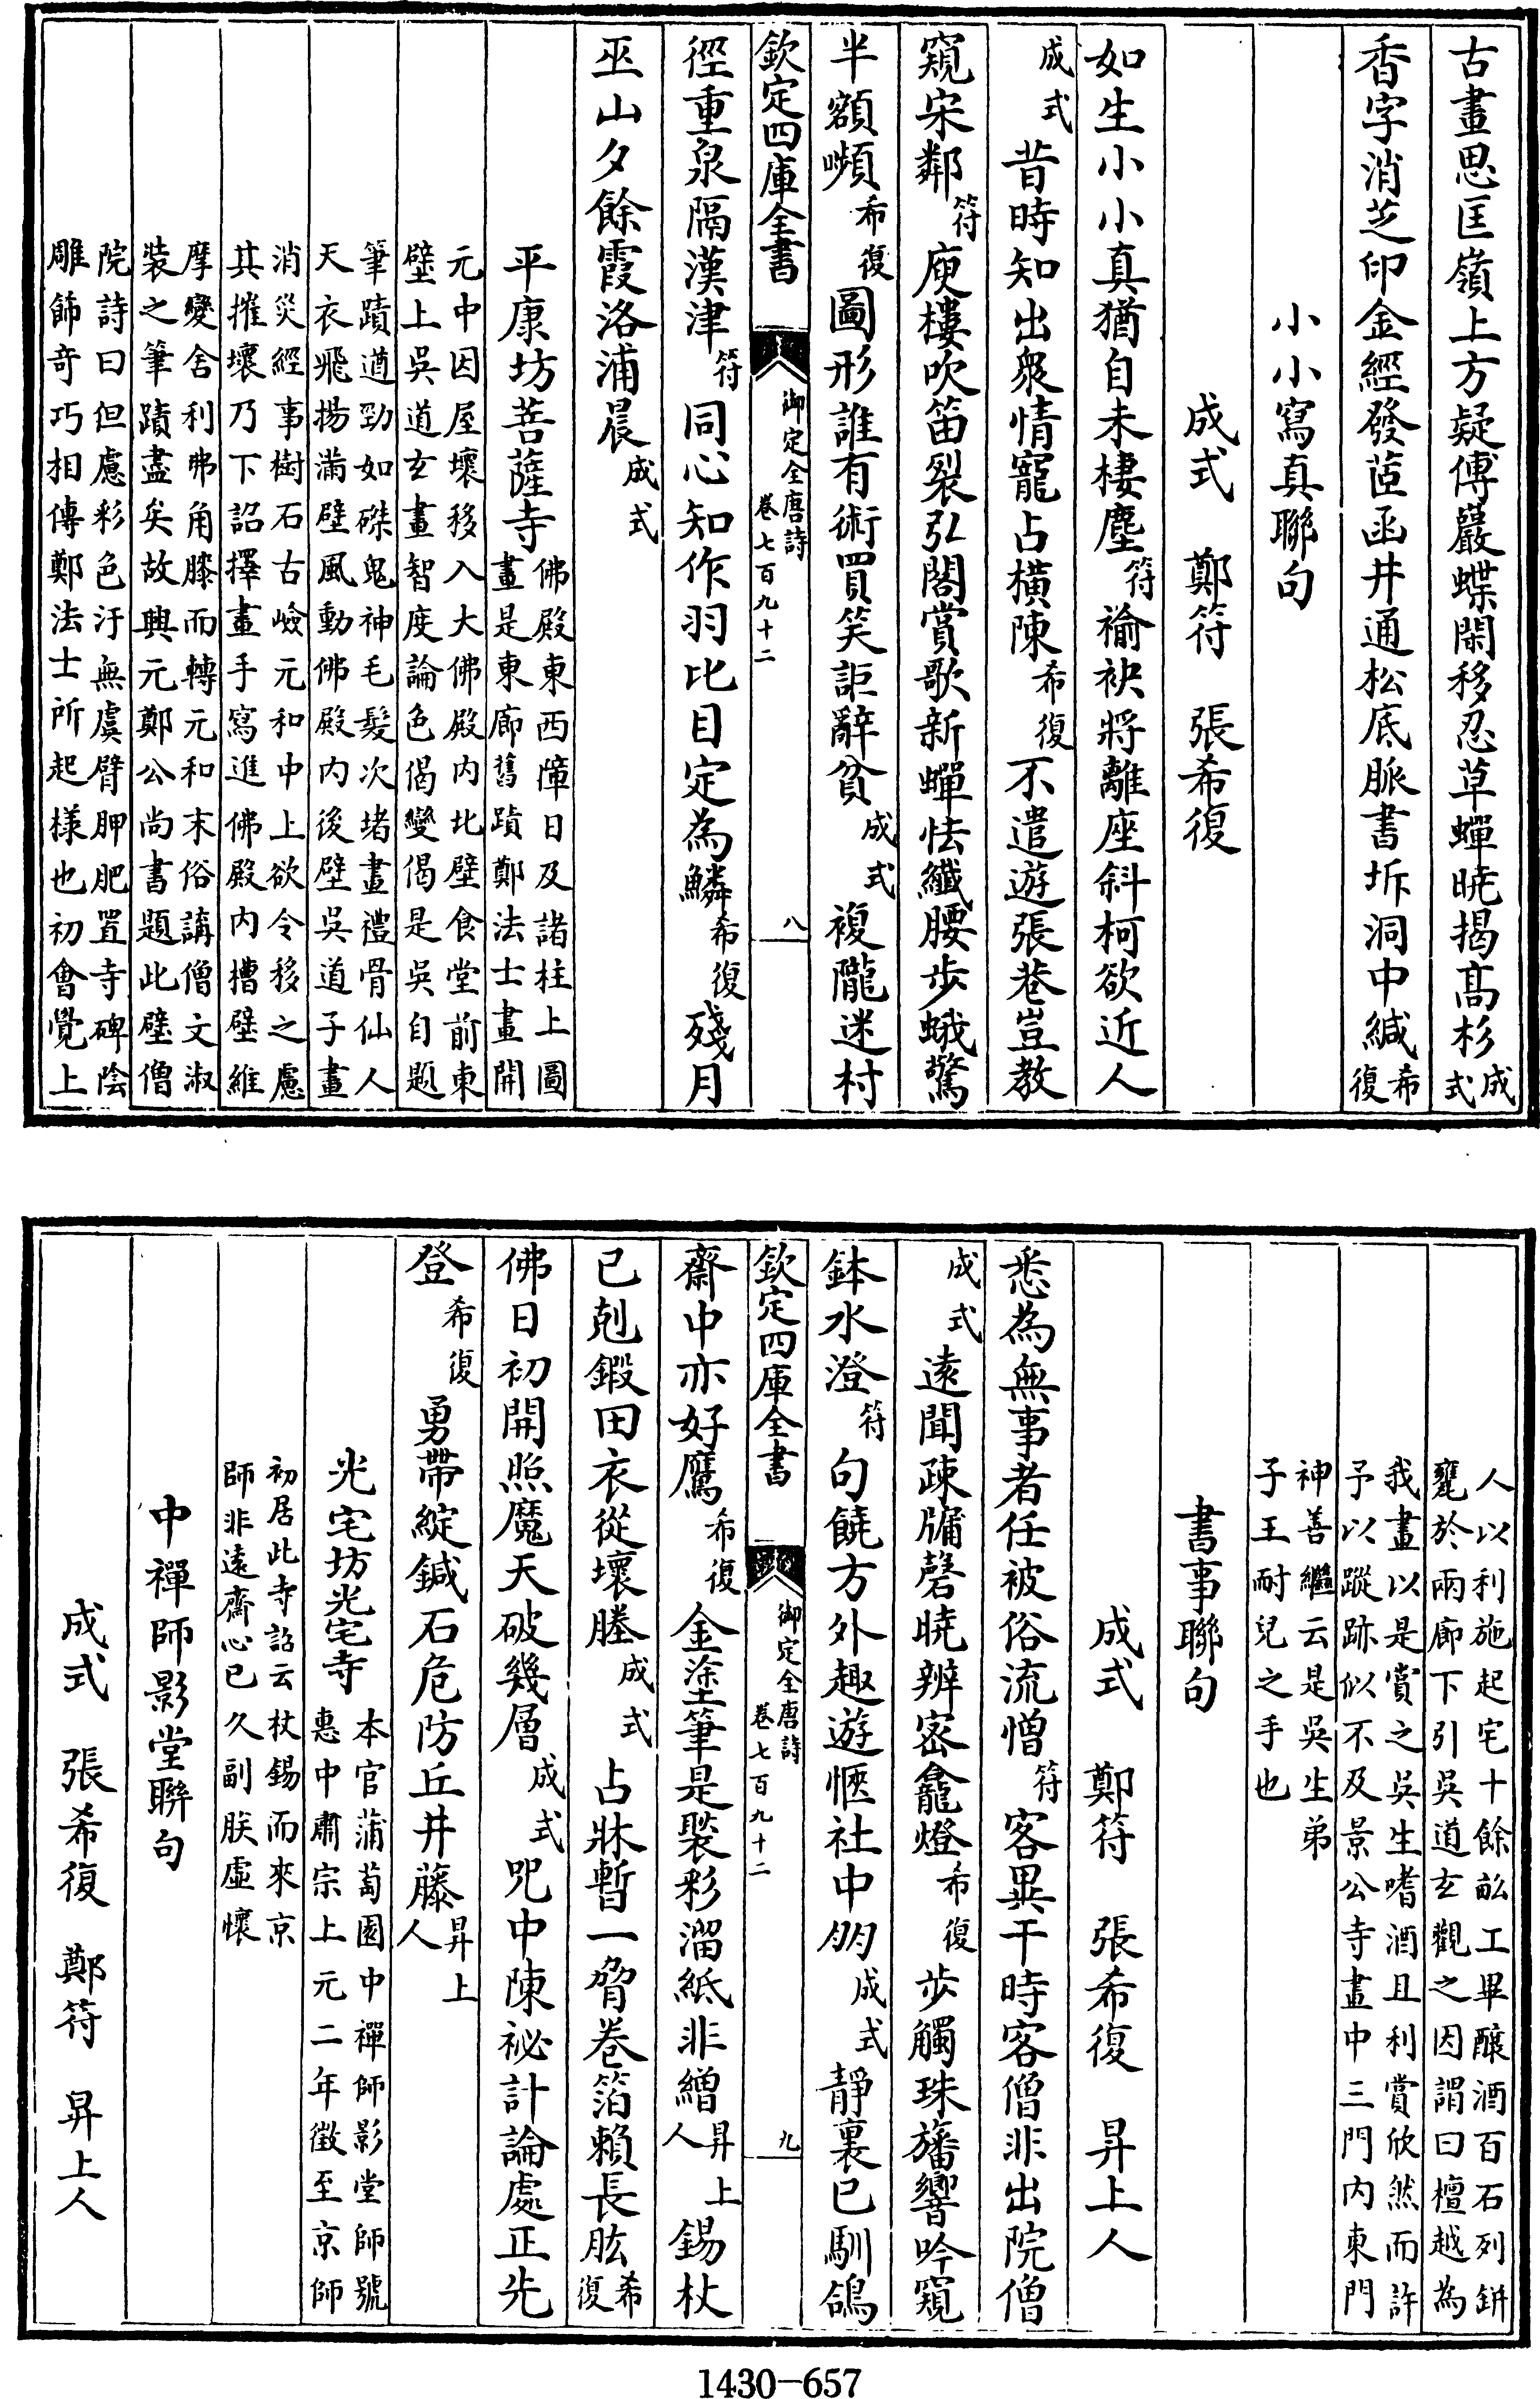 古畫思匡嶺上方疑傅巖蝶閑移忍草蟬曉揭高杉成式
香字消芝印金經發茝函井通松底脈書坼洞中緘希復
小小寫真聯句
成式　鄭符　張希復
如生小小真猶自未棲塵符褕袂將離座斜柯欲近人
成式昔時知出衆情寵占橫陳希復不遣遊張巷豈教
窺宋鄰符庾樓吹笛裂弘閣賞歌新蟬怯纖腰步蛾驚
半額嚬希復圖形誰有術買笑詎辭貧成式複隴迷村
欽定四庫全書
御定全唐詩
卷七百九十二
八
徑重泉隔漢津符同心知作羽比目定為鱗希復殘月
巫山夕餘霞洛浦晨成式
平康坊菩薩寺
佛殿東西障日及諸柱上圖
畫是東廊舊蹟鄭法士畫開
元中因屋壞移入大佛殿内北壁食堂前東
壁上吳道玄畫智度論色偈變偈是吳自題
筆蹟遒勁如磔鬼神毛髮次堵畫禮骨仙人
天衣飛揚滿壁風動佛殿内後壁吳道子畫
消災經事樹石古嶮元和中上欲令移之慮
其摧壞乃下詔擇畫手寫進佛殿内槽壁維
摩變舍利弗角膝而轉元和末俗講僧文淑
裝之筆蹟盡矣故興元鄭公尚書題此壁僧
院詩曰但慮彩色汙無虞臂胛肥置寺碑陰
雕飾竒巧相傳鄭法士所起樣也初會覺上
人以利施起宅十餘畝工畢釀酒百石列缾
甕於兩廊下引吳道玄觀之因謂曰檀越為
我畫以是賞之吳生嗜酒且利賞欣然而許
予以蹤跡似不及景公寺畫中三門内東門
神善繼云是吳生弟
子王耐兒之手也
書事聯句
成式　鄭符　張希復　昇上人
悉為無事者任被俗流憎符客異干時客僧非出院僧
成式遠聞疎牖磬曉辨宻龕燈希復步觸珠旛響吟窺
鉢水澄符句饒方外趣遊愜社中朋成式靜裏已馴鴿
欽定四庫全書
御定全唐詩
卷七百九十二
九
齋中亦好鷹希復金塗筆是裝彩溜紙非繒昇上人錫杖
已剋鍜田衣從壞塍成式占牀暫一脅巻箔賴長肱希復
佛日初開照魔天破幾層成式咒中陳祕計論處正先
登希復勇帶綻鍼石危防丘井藤昇上人
光宅坊光宅寺
本官蒲萄園中禪師影堂師號
惠中肅宗上元二年徵至京師
初居此寺詔云杖錫而來京
師非遠齋心已久副朕虛懷
中禪師影堂聯句
成式　張希復　鄭符　昇上人
1430-657